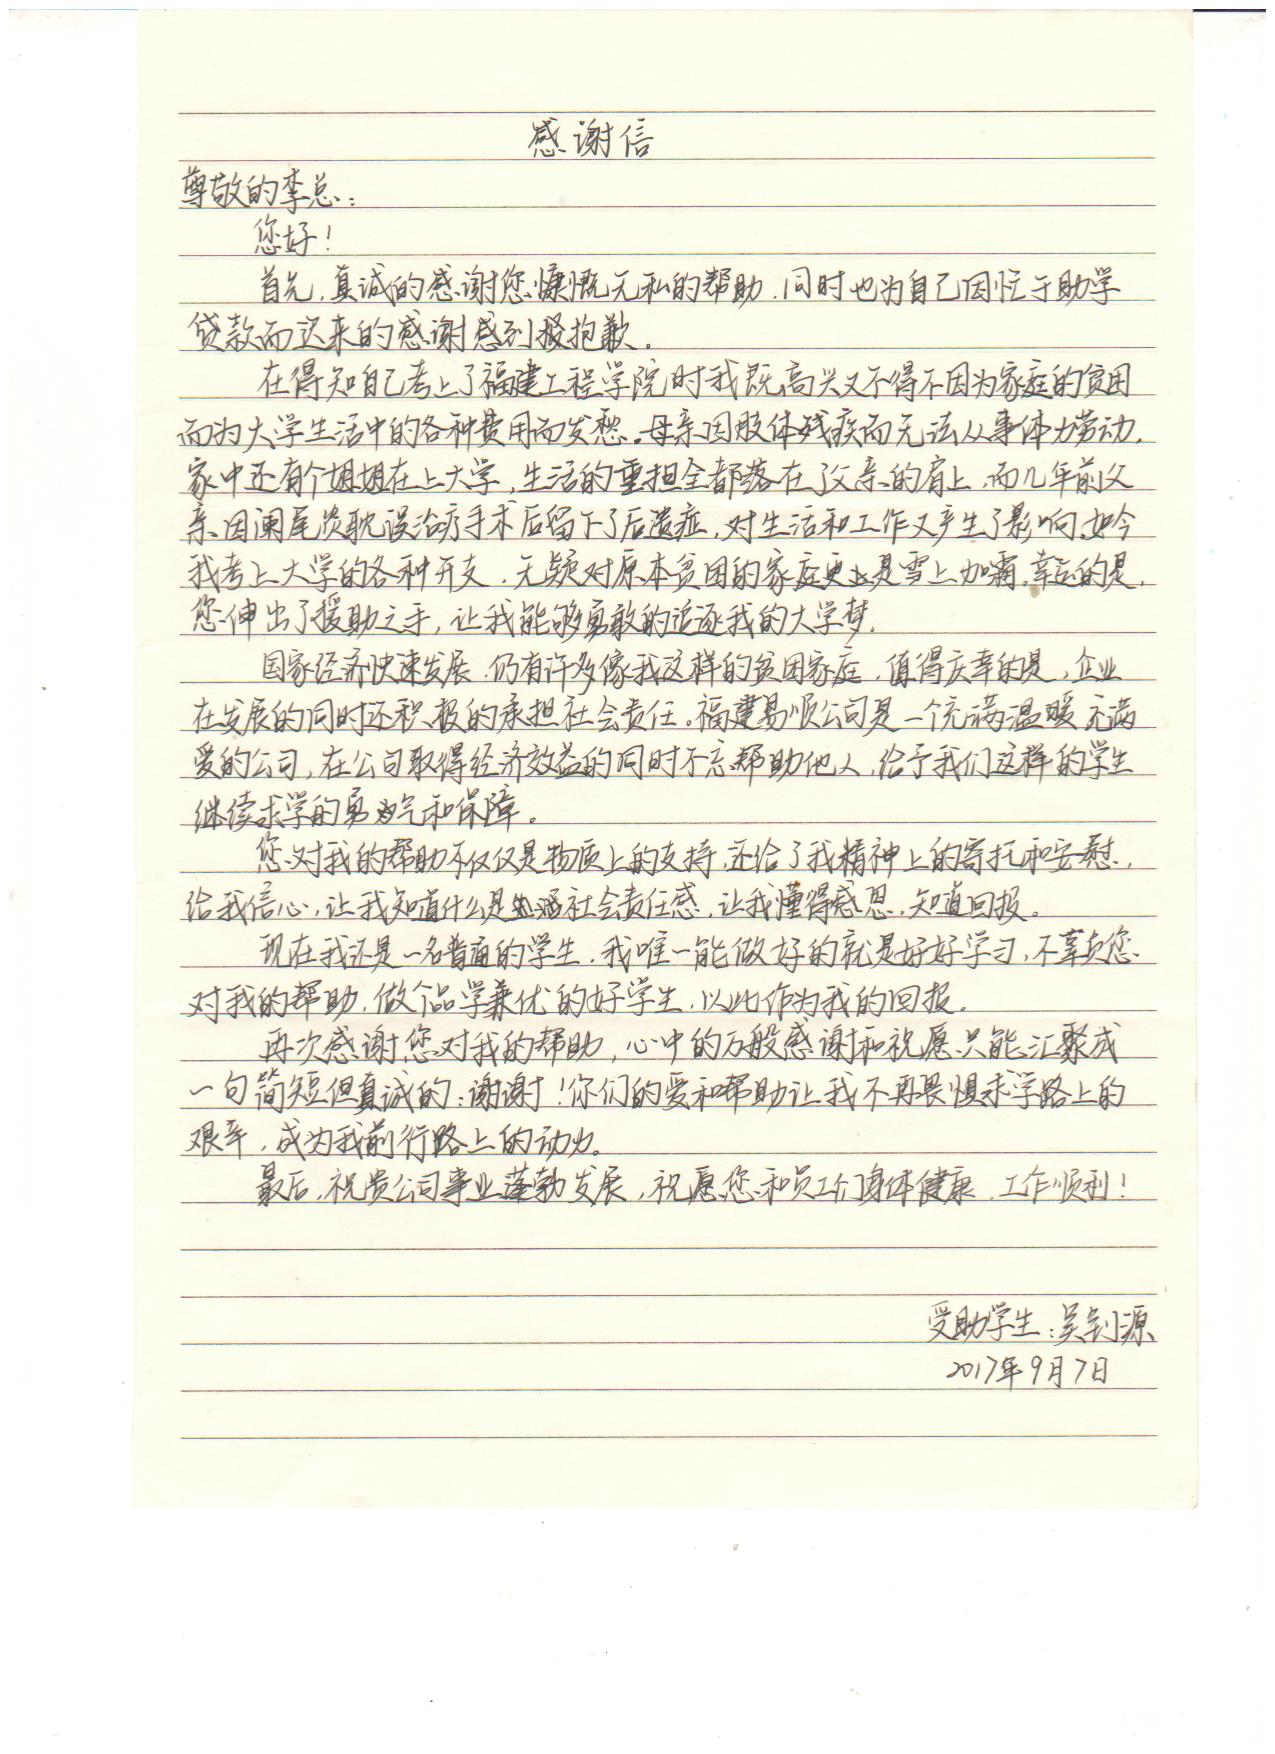 感谢信
尊敬的李总：
您好！
首先，真诚的感谢您慷慨无私的帮助，同时也为自己因忙于助学
贷款而迟来的感谢感到抱歉。
在得知自己考上了福建工程学院时我既高兴又不得不因为家庭的贫困
而为大学生活中的各种费用而发愁。母亲因肢体残疾而无法从事体力劳动，
家中还有个姐姐在上大学，生活的重担全都落在了父亲的肩上，而几年前父
亲因阑尾炎耽误治疗手术后留下了后遗症，对生活和工作又产生了影响。如今
我考上大学的各种开支，无疑对原本贫困的家庭更是雪上加霜。幸运的是，
您伸出了援助之手，让我能够勇敢的追逐我的大学梦。
国家经济快速发展，仍有许多像我这样的贫困家庭，值得庆幸的是，企业
在发展的同时还积极的承担社会责任。福建易顺公司是一个充满温暖充满
爱的公司，在公司取得经济效益的同时不忘帮助他人，给予我们这样的学生
继续求学的勇气和保障。
您对我的帮助不仅仅是物质上的支持，还给了我精神上的寄托和安慰，
给我信心，让我知道什么是社会责任感，让我懂得感恩，知道回报。
现在我还是一名普通的学生，我唯一能做好的就是好好学习，不辜负您
对我的帮助，做个品学兼优的好学生，以此作为我的回报。
再次感谢您对我的帮助，心中的万般感谢和祝愿只能汇聚成
一句简短但真诚的：谢谢！你们的爱和帮助让我不再畏惧求学路上的
艰辛，成为我前行路上的动力。
最后，祝贵公司事业蓬勃发展，祝愿您和员工们身体健康，工作顺利！
受助学生：吴钊源
2017年9月7日